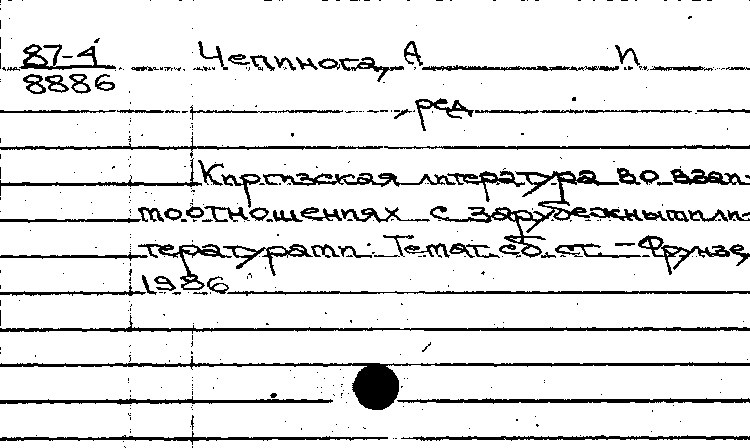 87-4 Чепинога, А П
8886
, ред
Киргизская литература во взаи-
моотношениях с зарубежными ли-
тературами: Темат. сб. ст. – Фрунзе,
1986